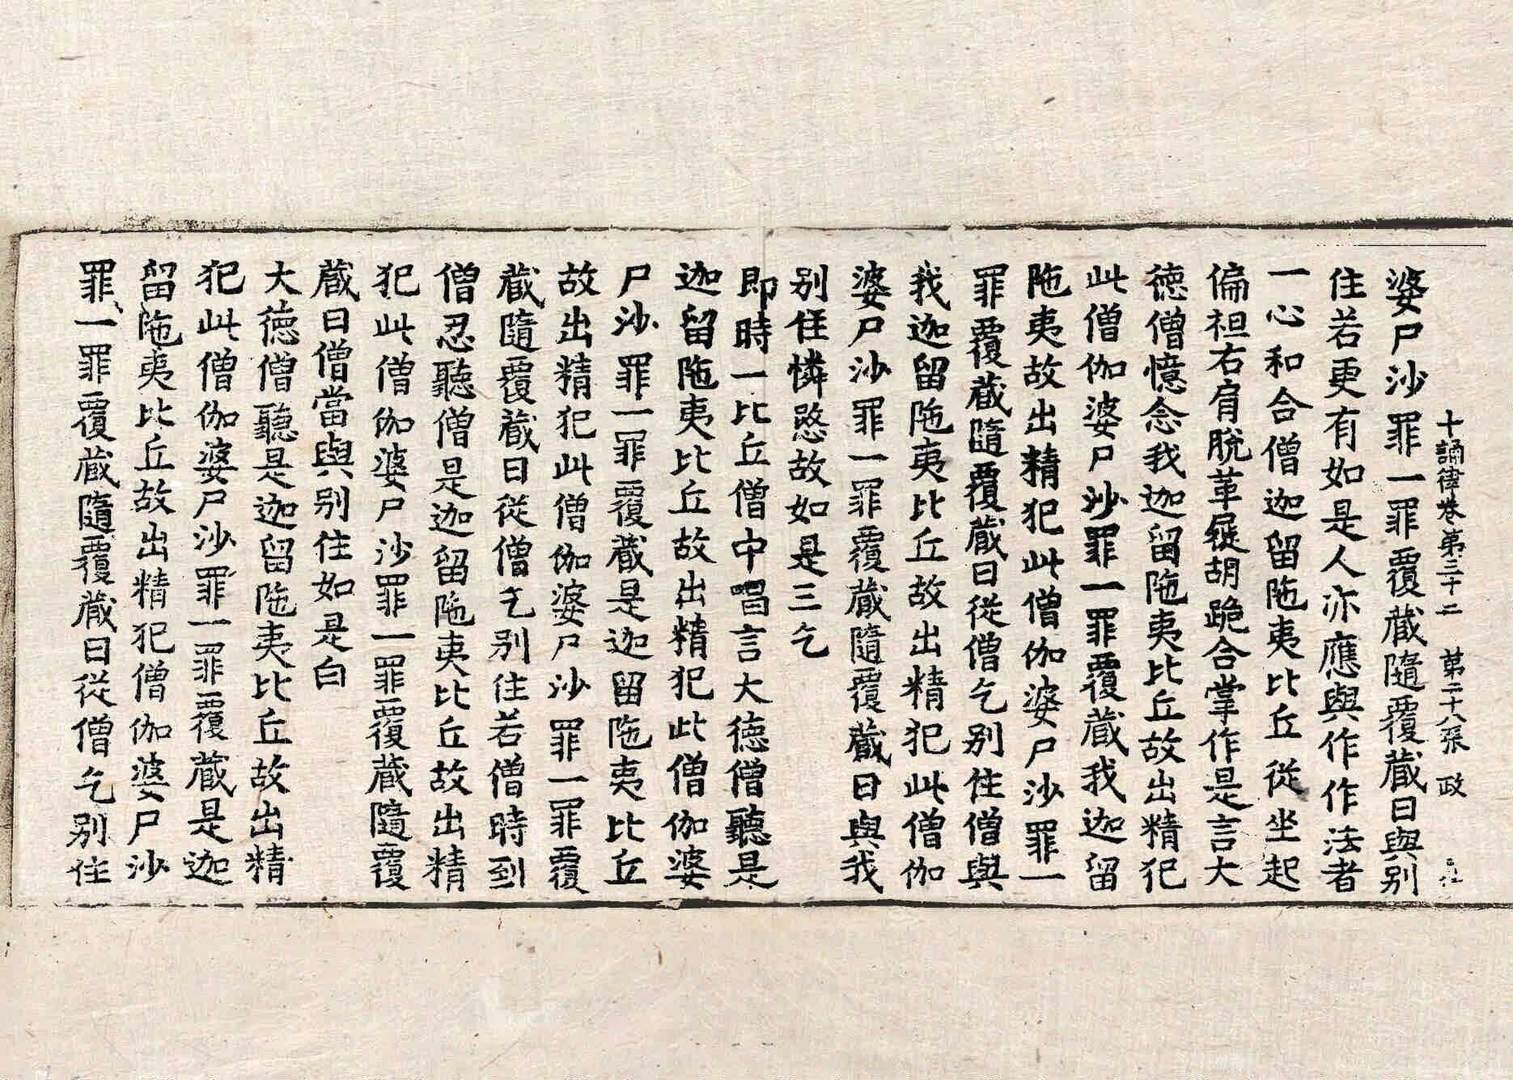 十誦律卷第三十二 第二十八張 政
婆尸沙罪一罪覆藏隨覆藏日與別
住若更有如是人亦應與作作法者
一心和合僧迦留陁夷比丘從坐起
偏袒右肩脫革屣胡跪合掌作是言大
德僧憶念我迦留陁夷比丘故出精犯
此僧伽婆尸沙罪一罪覆藏我迦留
陁夷故出精犯此僧伽婆尸沙罪一
罪覆藏隨覆藏日從僧乞別住僧與
我迦留陁夷比丘故出精犯此僧伽
婆尸沙罪一罪覆藏隨覆藏日與我
別住憐愍故如是三乞
即時一比丘僧中唱言大德僧聽是
迦留陁夷比丘故出精犯此僧伽婆
尸沙罪一罪覆藏是迦留陁夷比丘
故出精犯此僧伽婆尸沙罪一罪覆
藏隨覆藏日從僧乞別住若僧時到
僧忍聽僧是迦留陁夷比丘故出精
犯此僧伽婆尸沙罪一罪覆藏隨覆
藏日僧當與別住如是白
大德僧聽是迦留陁夷比丘故出精
犯此僧伽婆尸沙罪一罪覆藏是迦
留陁夷比丘故出精犯僧伽婆尸沙
罪一罪覆藏隨覆藏日從僧乞別住